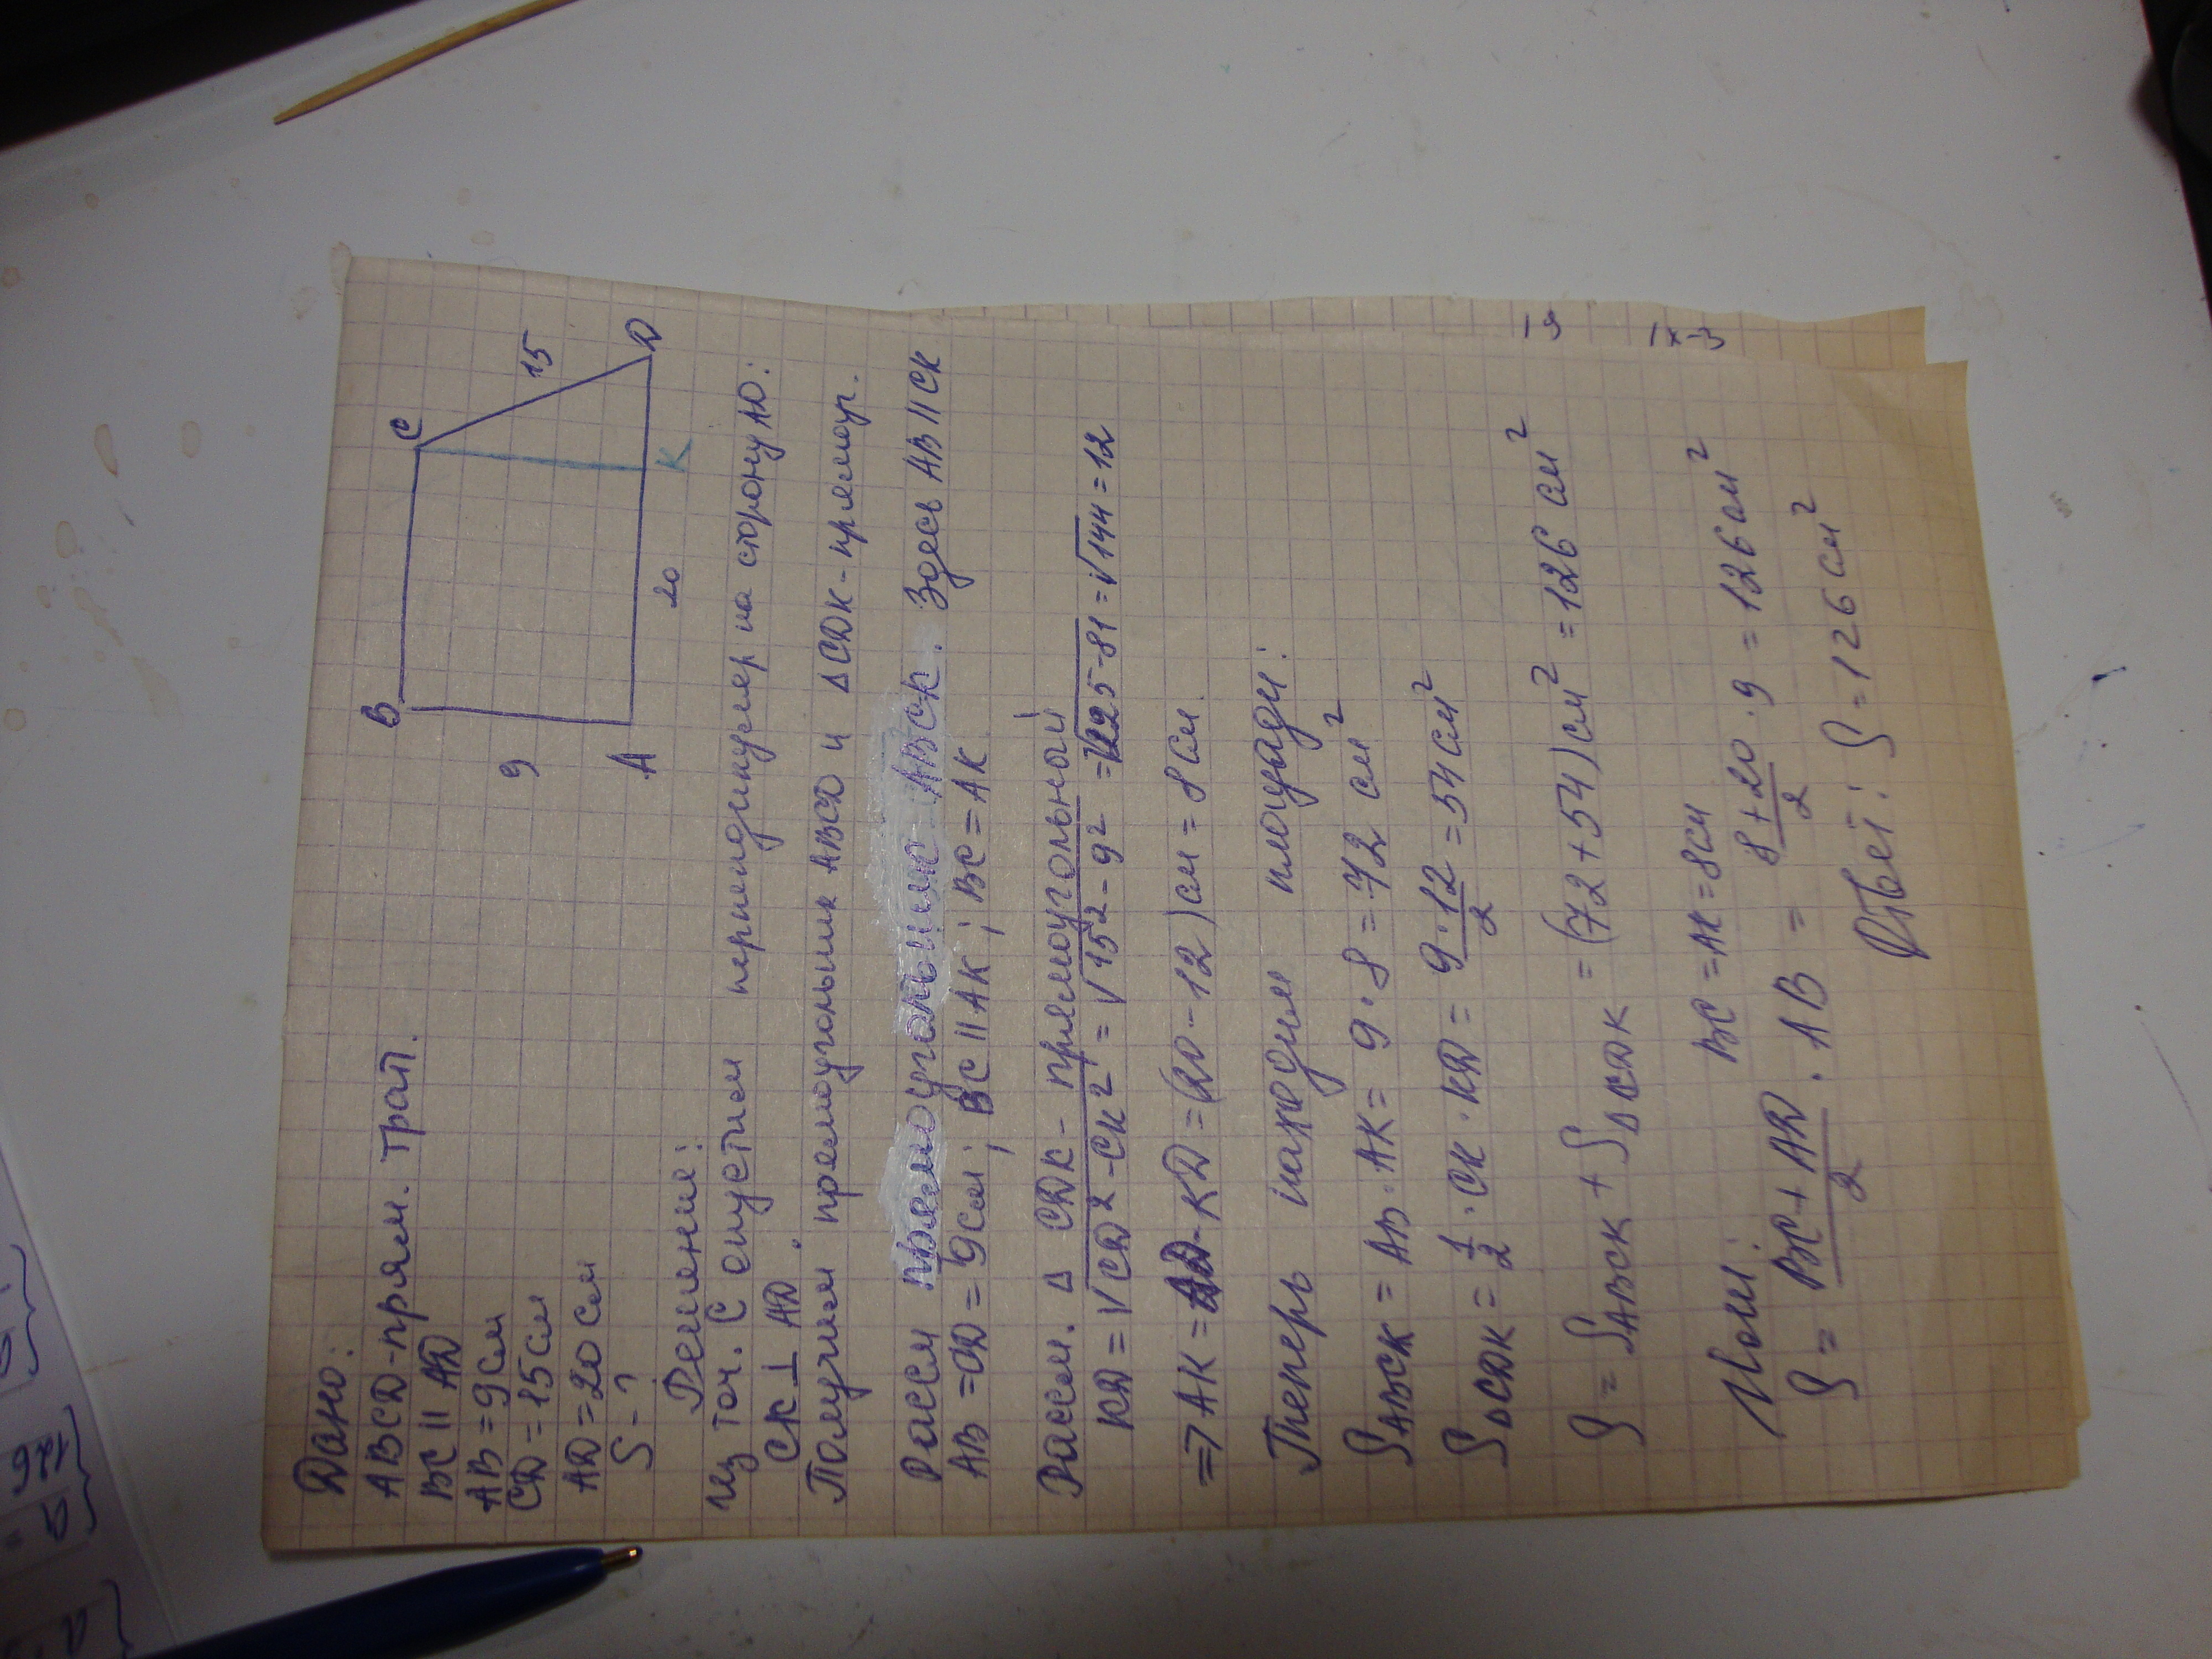 Дано:
ABCD-прям. трап.
BC || AD
AB = 9см
CD = 15см
AD = 20 см
S - ?
B
C
9
15
A
20
K
D
Решение:
Из точ. C опустим перпендикуляр на сторону AD:
CK ⊥ AD.
Получим прямоугольник ABCD и ΔCDK-прямоуг.
Рассм прямоугольник ABCK. Здесь AB || CK
AB = CD = 9см; BC || AK; BC = AK
Рассм. Δ CDK - прямоугольной
KD = √CD² - CK² = √15² - 9² = √225-81 = √144 = 12
=> AK = AD-KD = (20-12)см = 8см
Теперь находим площади:
S ABCK = AB·AK = 9·8 = 72 см²
S ΔCDK = 1/2 · CK · KD = 9·12/2 = 54 см²
S = S ABCK + S ΔCDK = (72+54)см² = 126 см²
Или: BC = AK = 8см
S = BC + AD/2 · AB = 8+20/2 · 9 = 126см²
Ответ: S = 126 см²